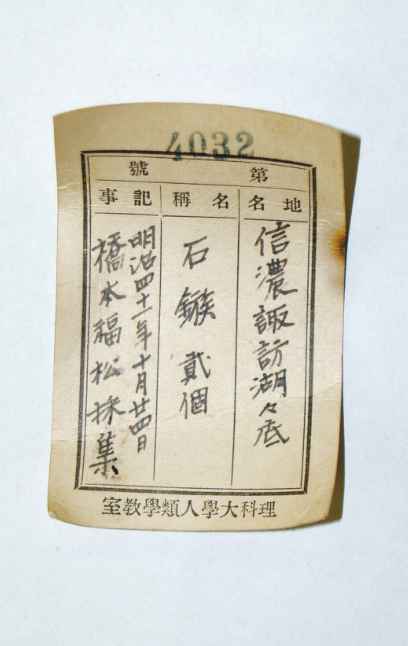 4032
第 號
地名
信濃諏訪湖々底
名稱
石鏃 貳個
記事
明治四十一年十月廿四日
橋本福松採集
理科大學人類學教室